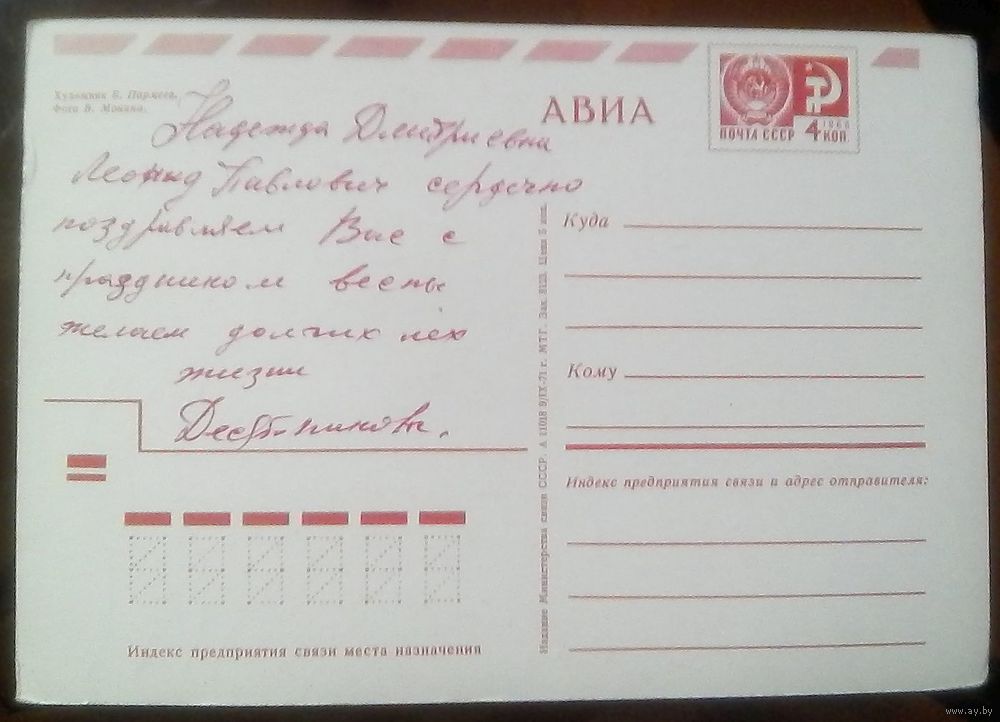 Художник Б. Пармеев.
Фото В. Монина.
АВИА
ПОЧТА СССР 4 КОП.
1966
Надежда Дмитриевна
Леонид Павлович сердечно
поздравляем Вас с
праздником весны
желаем долгих лет
жизни
Куда
Кому
Издание Министерства связи СССР. А 11018 9/IX-71 г. МТГ. Зак. 8123. Цена 5 коп.
Индекс предприятия связи и адрес отправителя:
Индекс предприятия связи места назначения
www.ay.by